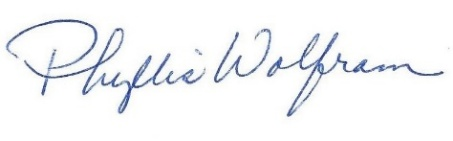 Phyllis Wolfram